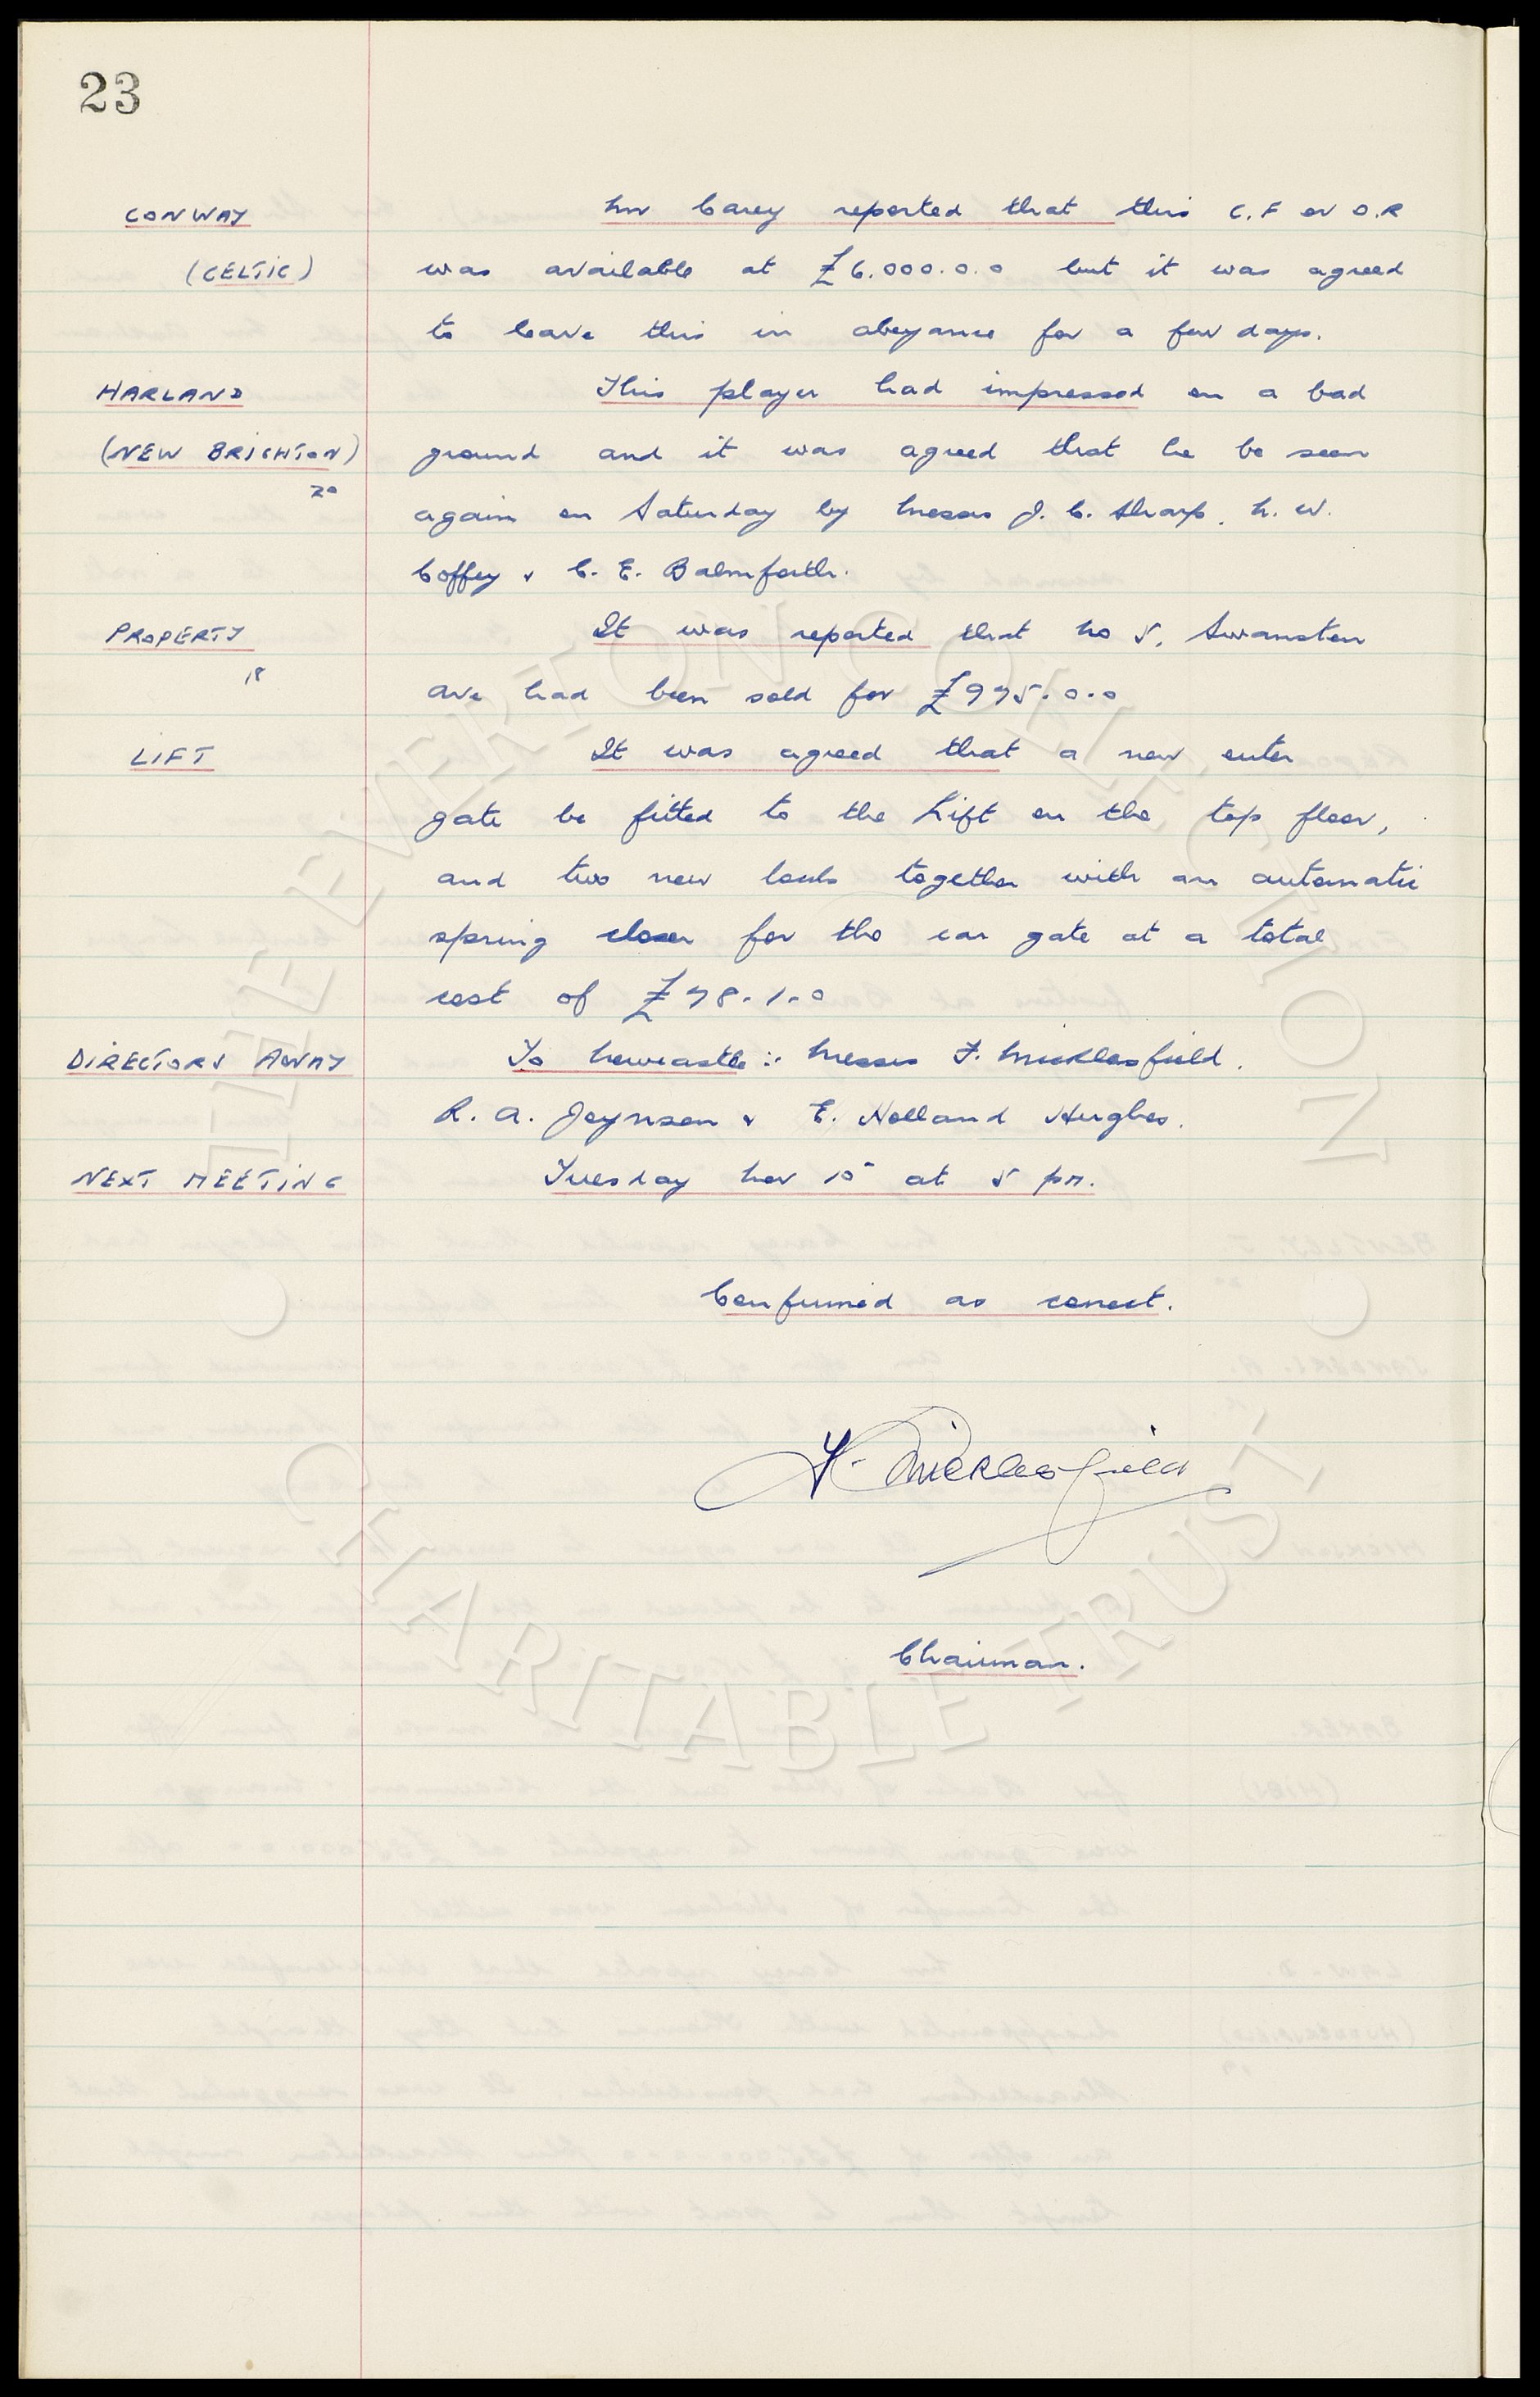 23
CONWAY Mr Carey reported that this C.F or O.R
(CELTIC) was available at £6.000.0.0 but it was agreed
to leave this in abeyance for a few days.
HARLAND This player had impressed on a bad
(NEW BRIGHTON) ground and it was agreed that he be seen
20
again on Saturday by Messrs J. C. Sharp, N. W.
Coffey & C. E. Balmforth.
PROPERTY It was reported that No 5, Swanston
18
Ave had been sold for £975.0.0
LIFT It was agreed that a new outer
gate be fitted to the Lift on the top floor,
and two new locks together with an automatic
spring closer for the car gate at a total
cost of £78.1.0
DIRECTORS AWAY To Newcastle :- Messrs F. Micklesfield,
R. A. Joynson & E. Holland Hughes.
NEXT MEETING Tuesday Nov 10 at 5 pm.
Confirmed as correct.
F. Micklesfield
Chairman.
THE EVERTON COLLECTION
CHARITABLE TRUST